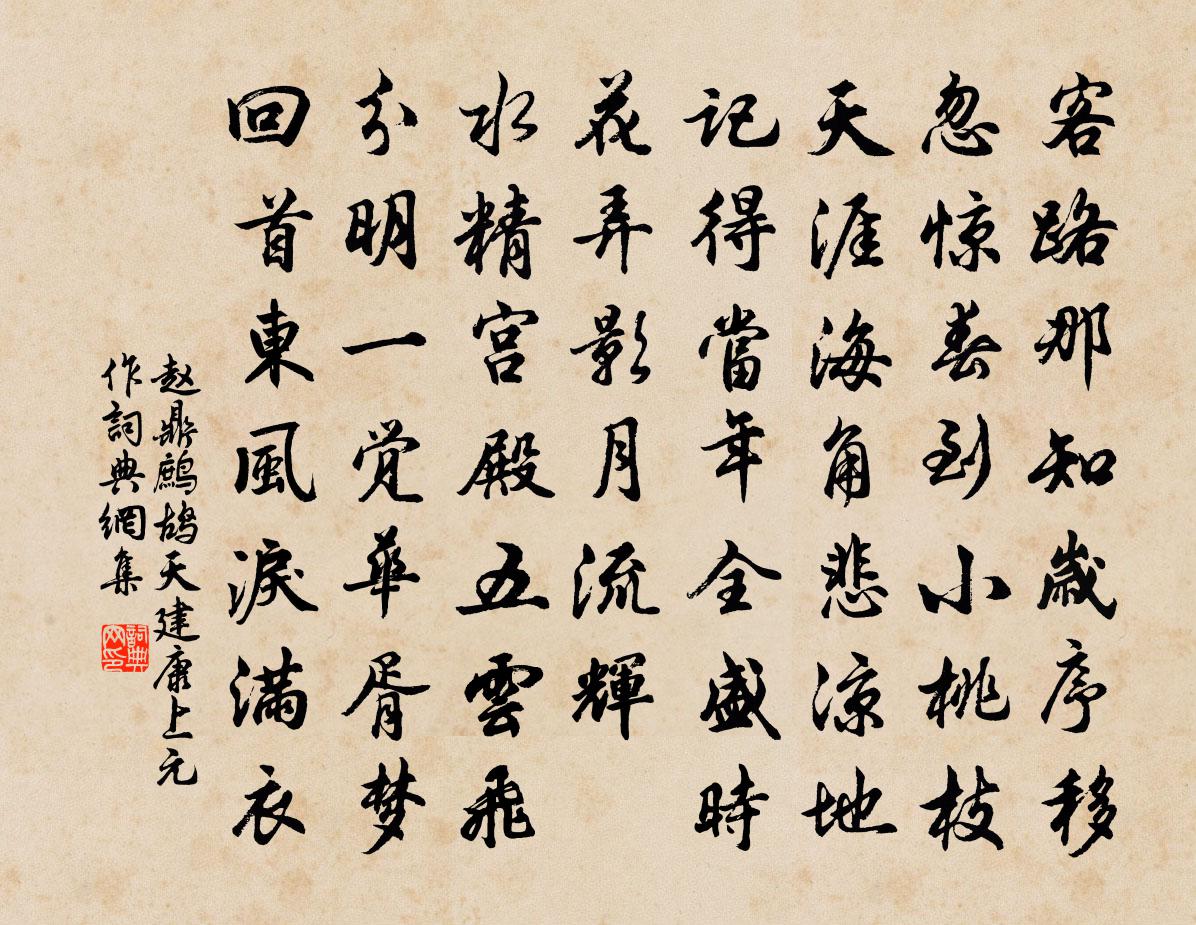 客路那知歲序移
忽惊春到小桃枝
天涯海角悲涼地
記得當年全盛時
花弄影月流輝
水精宮殿五雲飛
分明一觉華胥梦
回首東風淚滿衣
赵鼎鷓鴣天建康上元
作詞典網集
詞典網印